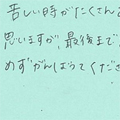 苦しい時がたくさん
思いますが、最後まで
めずがんばってくださ